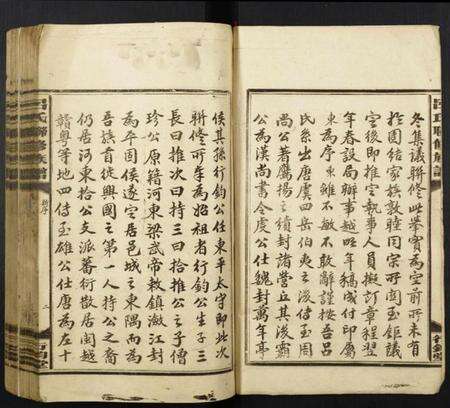 冬集議聯修此舉實為空前所未有
於團結家族敦睦同宗所關至鉅議
定後即推定執事人員擬訂章程翌
年春設局辦事越旺年稿成付印屬
東為序東雖不敏不敢辭謹按吾呂
氏系出唐虞四岳伯夷之後傳至周
尚公著鷹揚之績封諸營丘其後霸
公為漢尚書令虔公仕魏封萬年亭
侯其孫行鈞公任東平太守即此次
聯修所奉為始祖者行鈞公生子三
長曰推次曰持三曰拾推公之子僧
珍公原籍河東梁武帝敕鎮瀲江封
為平固侯遂定居邑城之東隅而為
吾族首從興國之第一人持公之裔
仍居河東拾公支派蕃衍散居閩越
贛粵等地四傳至雄公仕唐為左十
呂氏聯修族譜
新序
二